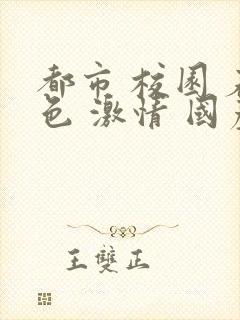 都市 校園
色 激情 國
王雙正